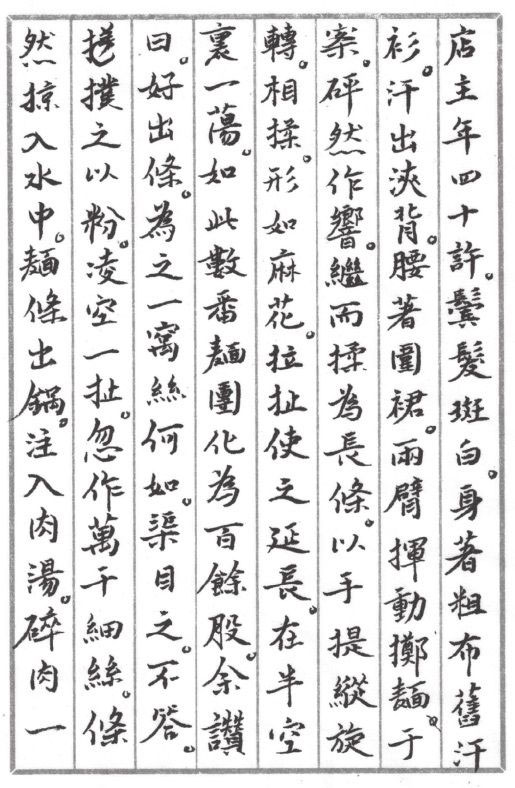 店主年四十許。鬢髮斑白。身著粗布舊汗
衫。汗出浹背。腰著圍裙。兩臂揮動擲麵。于
案。砰然作響。繼而揉為長條。以手提縱旋
轉。相揉。形如麻花。拉扯使之延長。在半空
裏一蕩。如此數番麵團化為百餘股。余讚
曰。好出條。為之一窩絲何如。渠目之。不答。
撲之以粉。凌空一扯。忽作萬千細絲。條
然掠入水中。麵條出鍋。注入肉湯。碎肉一